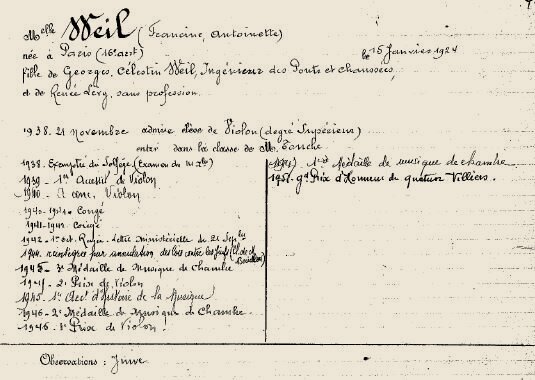 Melle Weil (Francine, Antoinette)
née à Paris (16e arrt) le 15 Janvier 1924
fille de Georges, Célestin Weil, Ingénieur des Ponts et Chaussées,
et de Renée Lévy, sans profession.
1938. 21 Novembre admise élève de Violon (degré Supérieur)
entre dans la classe de M. Touche
1938. Exemptée du Solfège (Examen du
1939 - 1er Accessit de Violon
1940 - A conc. Violon
1940-1941. Congé
1941-1942. Congé
1942 - 1er oct. Rayée - Lettre Ministérielle du 21 Sep
1944. réintégrée par annulation des lois contre les Juifs
1945 - 3e Médaille de Musique de Chambre
2e Prix de Violon
1945. 1er d'Histoire de la Musique
1946 - 2e Médaille de Musique de Chambre
1946. 1er Prix de Violon
1ère Médaille de musique de chambre
gd Prix d'Honneur de quatuor Villiers.
Observations : Juive